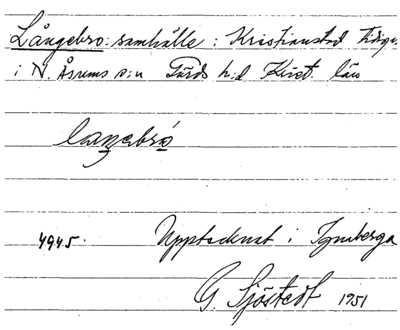 Långebro: samhälle: Kristianstad tidiga.
i N. Åsums s:n Gärds h:d Krist. län
laŋebró
4945. Upptecknat i Ignaberga
G. Sjöstedt 1951